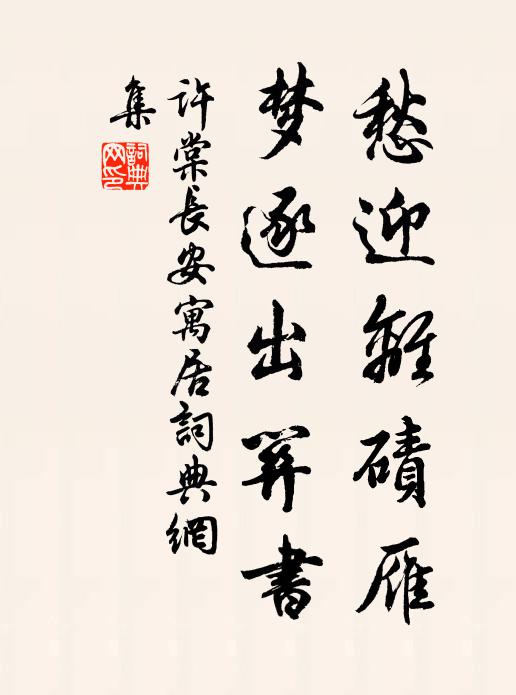 愁迎離磧雁
梦逐出関書
許棠長安寓居詞典網
集
詞典网印